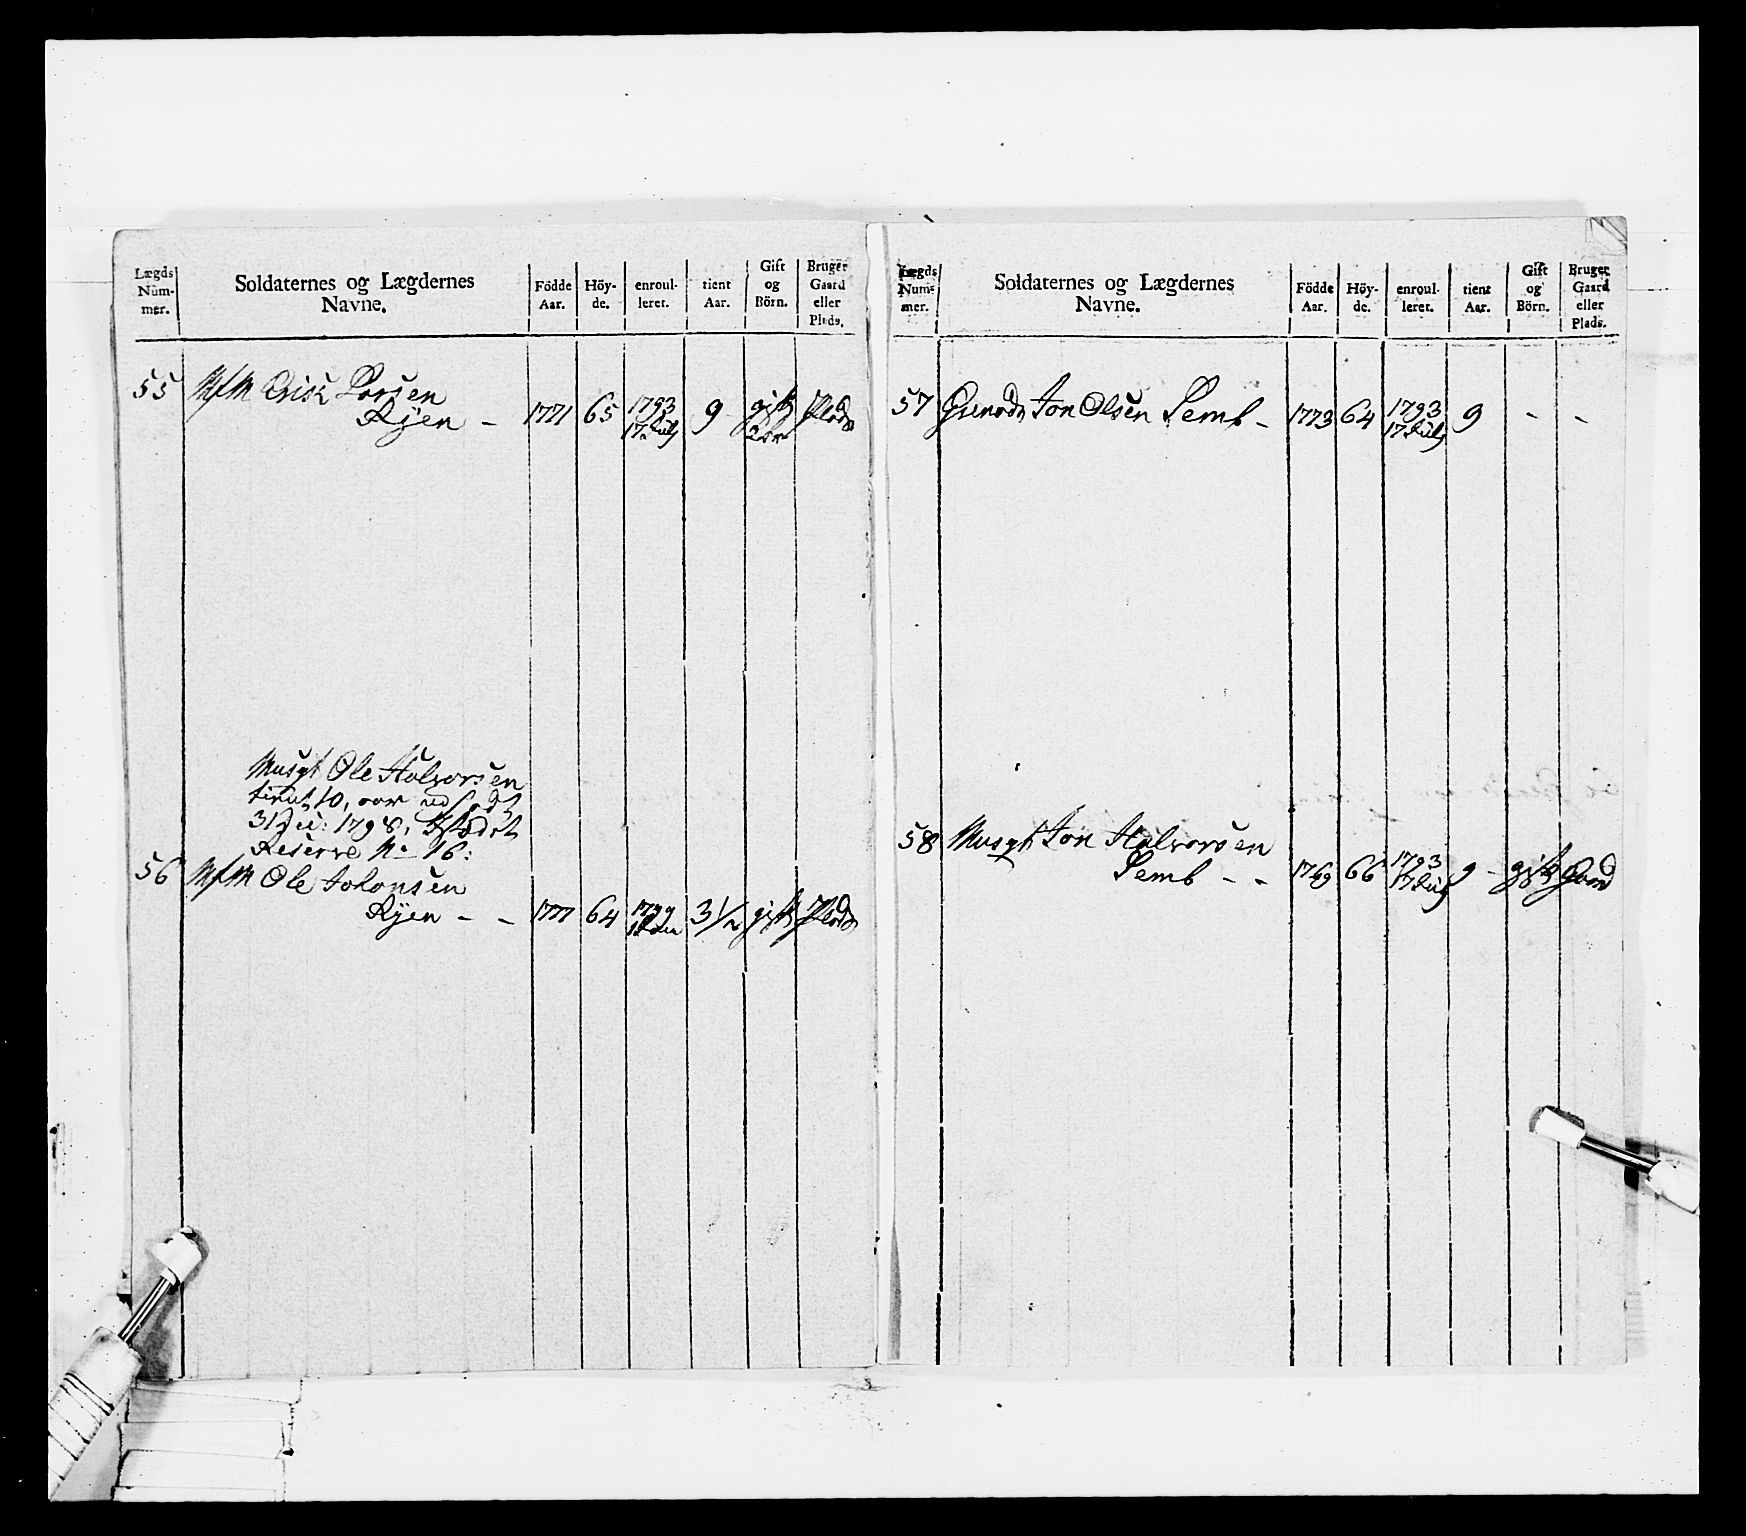 Lægds Num- mer.
Soldaternes og Lægdernes Navne.
Födde Aar.
Höy- de.
enroul- leret.
tient Aar.
Gift og Börn.
Bruger Gaard eller Plads.
55 Erik Larsen
Ryen – 1771 65 1793 17 July 9 gift 2 Plads
Musqt Ole Halvorsen
tient 10, aar
31 1798,
Reserve No 16:
56 Ole Johansen
Ryen – – 1777 64 1799 3 1/2 gift Plads
Lægds Num- mer.
Soldaternes og Lægdernes Navne.
Födde Aar.
Höy- de.
enroul- leret.
tient Aar.
Gift og Börn.
Bruger Gaard eller Plads.
57 Grenadr Jon Olsen Semb – 1773 64 1793 17 July 9 - -
58 Musqt Jon Halvorsen
Semb – – 1769 66 1793 17 July 9 – gift Gaard